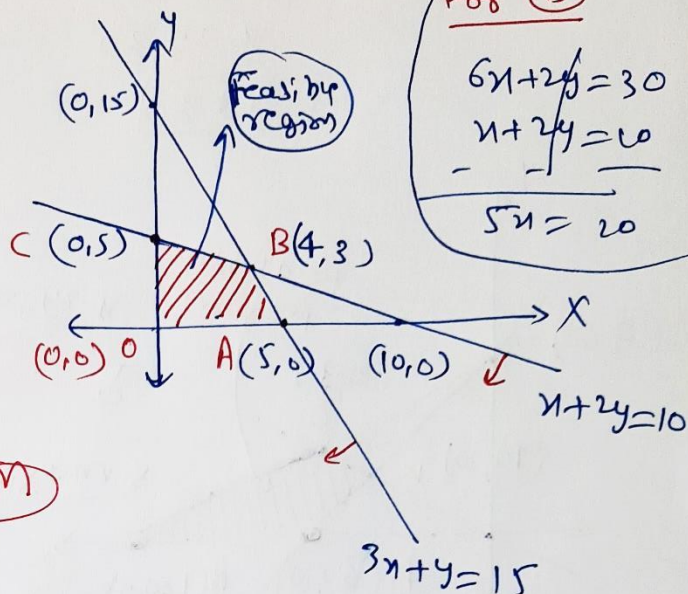 y
(0,15)
Feasibe
region
6x+2y=30
x+2y=10
- - -
5x= 20
C (0,5)
B(4,3)
X
(0,0) O
A(5,0)
(10,0)
x+2y=10
3x+y=15